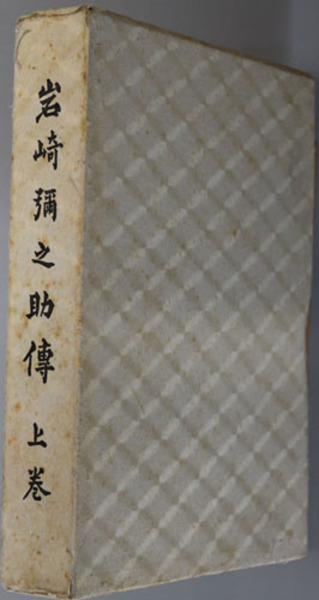 岩崎彌之助傳 上巻